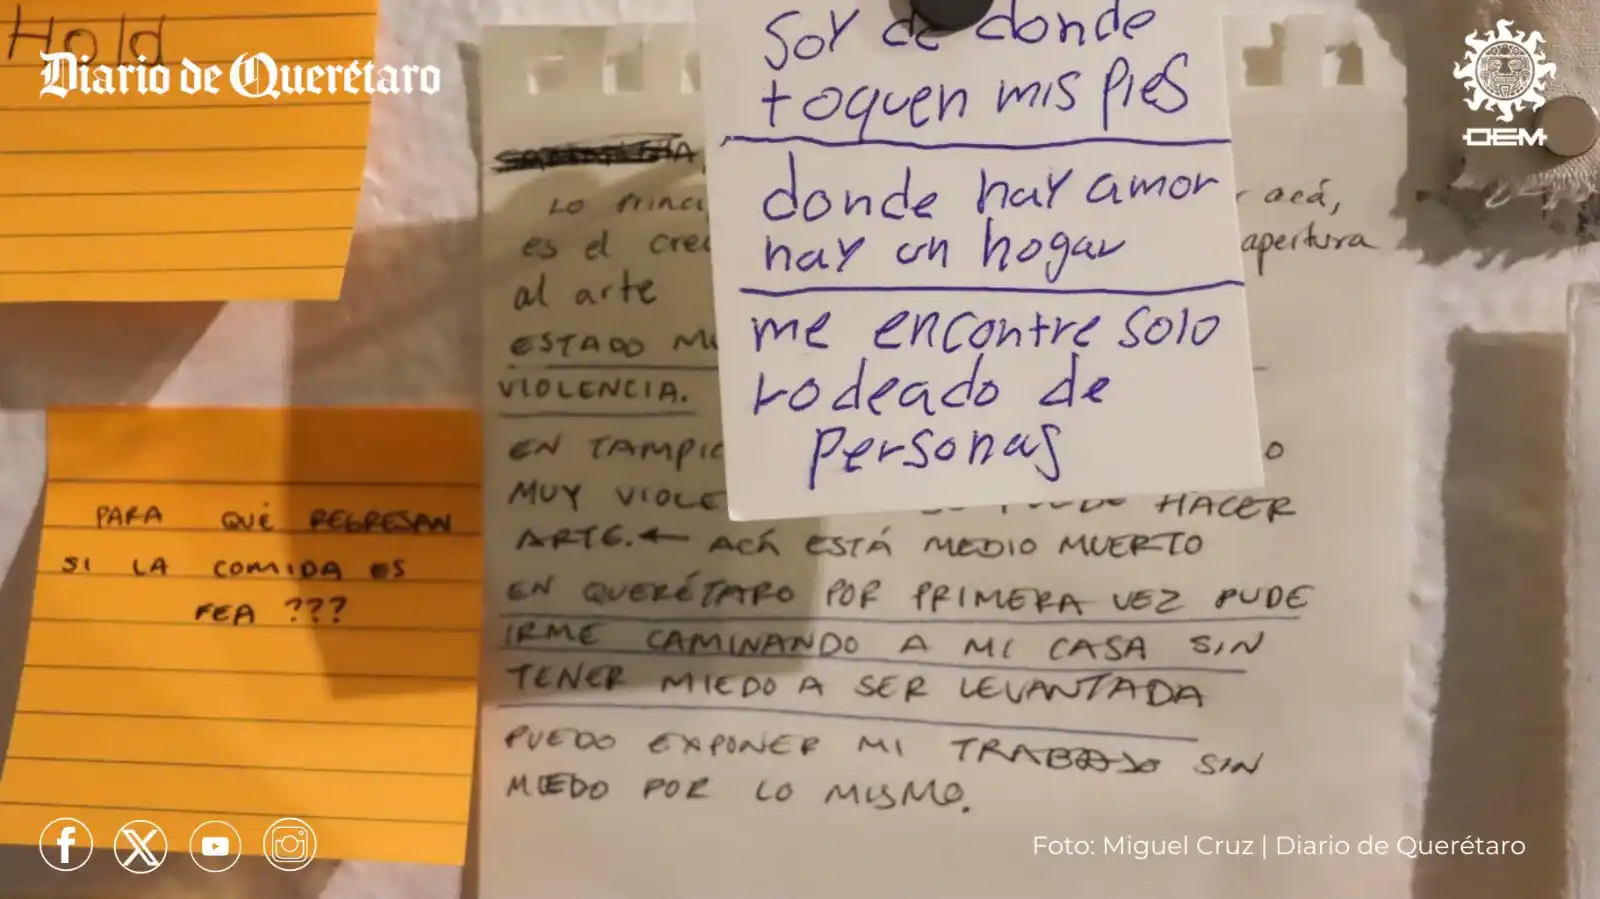 Hold
Diario de Querétaro
OEM
Soy de donde
toquen mis pies
donde hay amor
hay un hogar
me encontre solo
rodeado de
personas
Lo
acá,
es el apertura
al arte
ESTADO
VIOLENCIA.
EN
MUY HACER
ARTE. ← ACÁ ESTÁ MEDIO MUERTO
EN QUERÉTARO POR PRIMERA VEZ PUDE
IRME CAMINANDO A MI CASA SIN
TENER MIEDO A SER LEVANTADA
PUEDO EXPONER MI TRABAJO SIN
MIEDO POR LO MISMO.
PARA QUÉ REGRESAN
SI LA COMIDA ES
FEA ???
Foto: Miguel Cruz | Diario de Querétaro